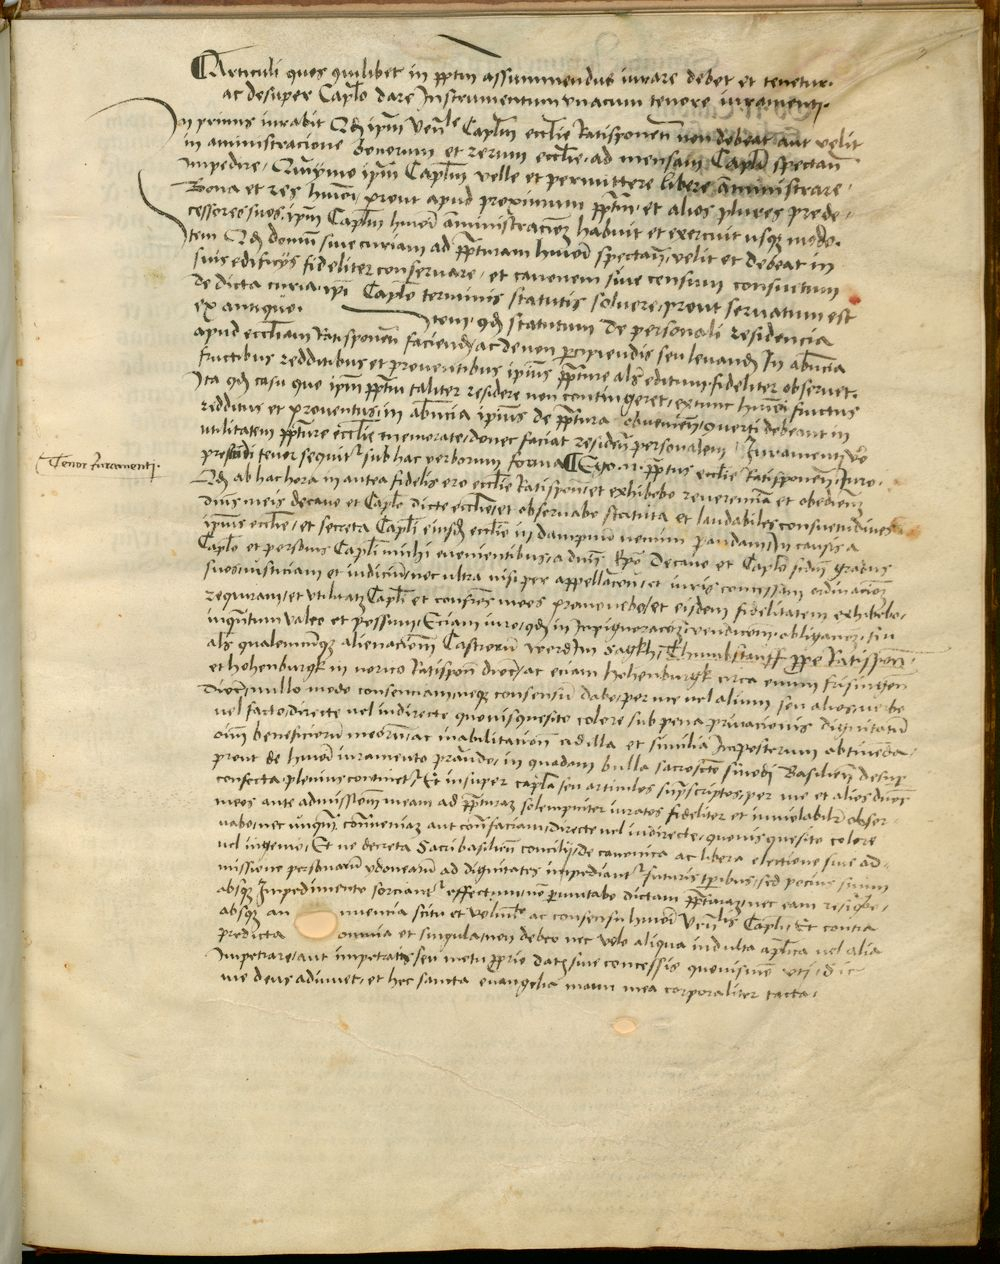 Articuli quos quilibet in pptm assummendus iurare debet et tenetur.
ac desuper Caplo dare Instrumentum vnacum tenore iuramenti.
In primis iurabit Qd ipm Venle Caplm ecclie Ratisponen non debeat aut velit
in aministracione Bonorum et rerum ecclie, ad mensam Capli spectan
Impedire, Quiymo ipm Caplm velle et permittere libere aministrare,
Bona et res hmoi, prout apud proximum pptm, et alios plures prede,
cessores suos, ipm Caplm hmoi aministracioez habuit et exercuit usqz modo.
Item Qd domu siue curiam ad ppturam hmoi spectan, velit et debeat in
suis edificijs fideliter conseruare, et canonem siue censum consuetum
de dicta curia, ipi Caplo terminis statutis soluere, prout seruatum est
ex antiquo. Item, qd statutum de personali residencia
apud eccliam Ratisponen faciend, ac de non percipiendis seu leuand In abncia
fructibus redditibus et prouentibus ipius ppture als editum, fideliter obseruet.
Ita qd casu quo ipm pptm taliter residere non contingeret, extunc hmoi fructus
redditus et prouentus, in abncia ipius de pptura obuenien, conuerti debeant in
utilitatem ppture ecclie memorate, donec faciat residen personalem Iuramenti vo
prestandi tenor sequitr sub hac verborum forma Ego .n. pptus ecclie Ratisponen, Iuro.
Tenor Iuramenti.
Qd ab hac hora in antea fidelis ero ecclie Ratispon, et exhibebo reuerenciam et obedienz
dnis meis decano et Caplo dicte ecclie, et obseruabo statuta et laudabiles consuetudines
ipius ecclie, et secreta Capli eiusd ecclie in dampnum nemini pandam, In causis a
Caplo et personis Capli michi euenientibus, a dnis Decano et Caplo gradus
suos, iusticiam et iudicium, nec ultra nisi per appellacoem, et iuris concessam ordinacioez
zequram, et utilitatz Capli et confres meos promouebo, et eisdem fidelitatem exhibebo,
inquantum valeo et possum, Eciam iuro, qd in Inpignoracoez, vendicoem, obligacoez, seu
als qualemcunqz alienacioem Castrorum werd Im Sagkh, Thumbstauff prope Ratisponam
et hohenburgk in norico Ratispon dioc, ac eciam hohenburgk circa enum frisingen
dioc, nullo modo consenciam, neqz consensu dabo, per me vel alium seu alios, verbo
vel facto, directe vel indirecte quouisquesito colore sub pena priuacionis dignitatu
oim beneficioru meoru, ac inabilitacion ad illa et similia Imposterum obtinenda,
prout de hmoi iuramento prestando, in quadam bulla sacroscte sinodi Basilien desup
confecta, plenius continetr Et insuper capla seu articulos suprascriptos, per me et alios dnos
meos ante admissioem meam ad ppturaz solempniter iuratos fideliter et inuiolabilr obser-
uabo, nec unquam conueniaz aut confaciam, directe vel indirecte, quouis quesito colore
vel ingenio, Et ne decreta Sacri basilien concilij, de canonica ac libera electione siue ad-
missione personaru ydonearu ad dignitates impediantr futuris tpibus, sed pocius suum
absqz Impedimento sorciantr effectum, non permutabo dictam ppturaz, nec eam resigbo,
absqz an nuencia scitu et volunte ac consensu hmoi Venlis Capli, Et contra
predicta omnia et singula, non debeo nec volo aliqua indulta aplica vel alia
Impetrare, aut impetratis seu motu pprio datis, siue concessis quouismo vti, Sic
me deus adiuuet, et hec sancta euangelia manu mea corporaliter tacta.